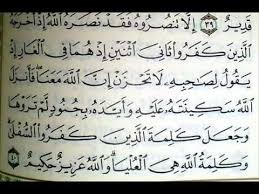 قَدِيرٌ ٣٩ إِلَّا تَنصُرُوهُ فَقَدْ نَصَرَهُ ٱللَّهُ إِذْ أَخْرَجَهُ
ٱلَّذِينَ كَفَرُوا۟ ثَانِىَ ٱثْنَيْنِ إِذْ هُمَا فِى ٱلْغَارِ إِذْ
يَقُولُ لِصَٰحِبِهِۦ لَا تَحْزَنْ إِنَّ ٱللَّهَ مَعَنَا فَأَنزَلَ
ٱللَّهُ سَكِينَتَهُۥ عَلَيْهِ وَأَيَّدَهُۥ بِجُنُودٍ لَّمْ تَرَوْهَا
وَجَعَلَ كَلِمَةَ ٱلَّذِينَ كَفَرُوا۟ ٱلسُّفْلَىٰ
وَكَلِمَةُ ٱللَّهِ هِىَ ٱلْعُلْيَا وَٱللَّهُ عَزِيزٌ حَكِيمٌ ٤٠